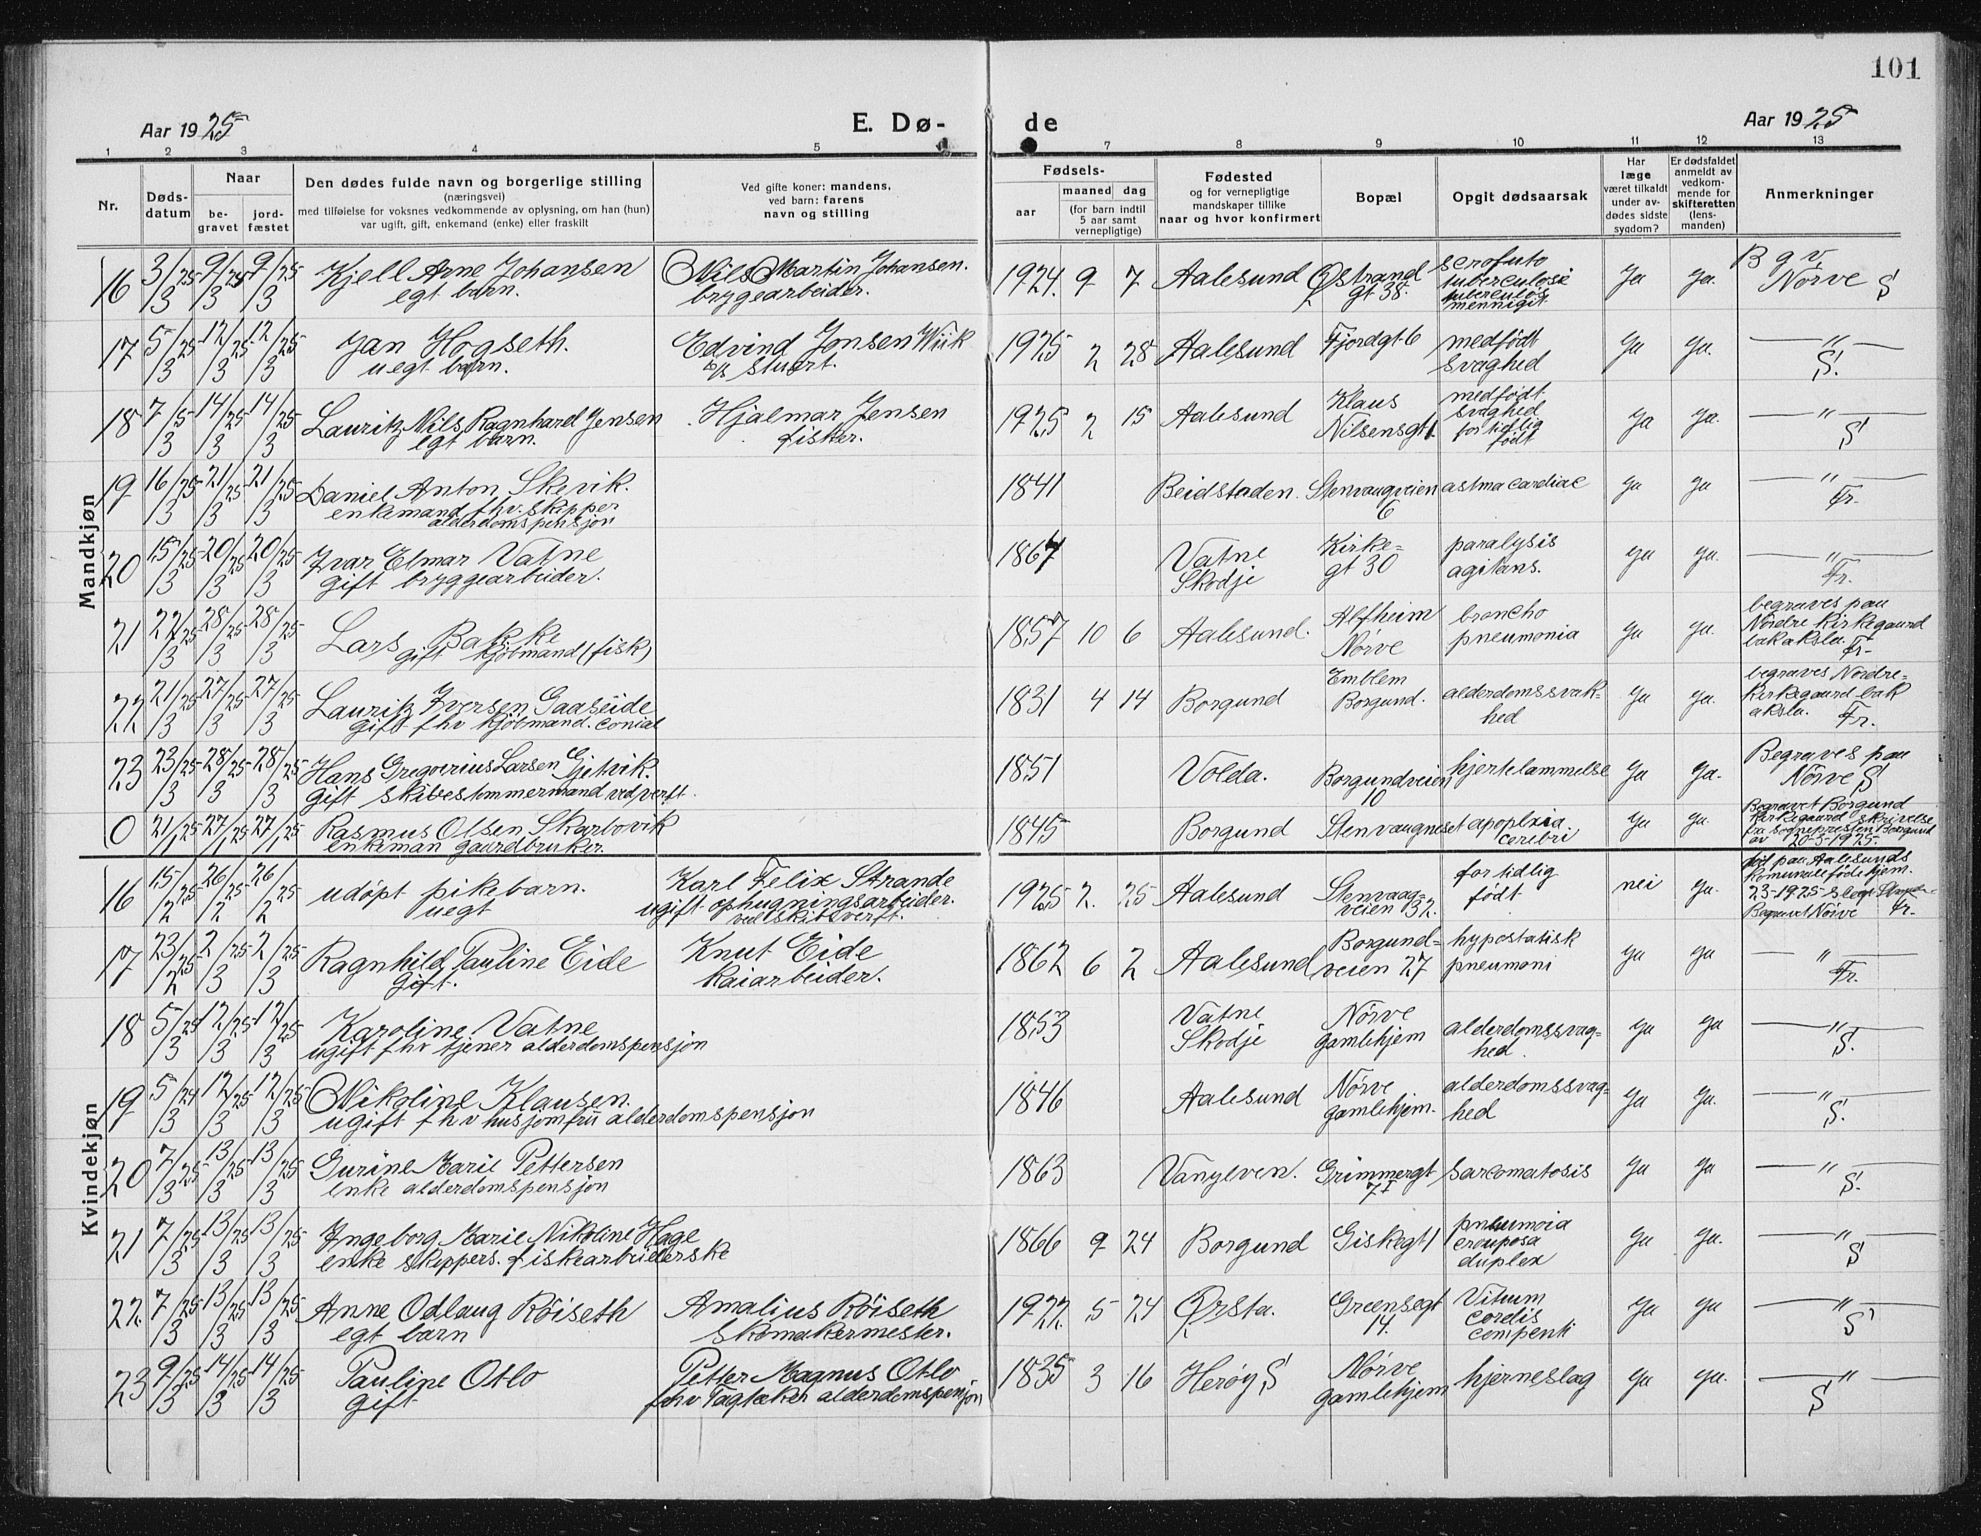 101
Aar 1925
E. Dø-
de
Aar 1925
1 2 3 4 5 7 8 9 10 11 12 13
Nr.
Døds-
datum
Naar
be-
gravet
jord-
fæstet
Den dødes fulde navn og borgerlige stilling
(næringsvei)
med tilføielse for voksnes vedkommende av oplysning, om han (hun)
var ugift, gift, enkemand (enke) eller fraskilt
Ved gifte koner: mandens,
ved barn: farens
navn og stilling
Fødsels-
aar
maaned dag
(for barn indtil
5 aar samt
vernepligtige)
Fødested
og for vernepligtige
mandskaper tillike
naar og hvor konfirmert
Bopæl
Opgit dødsaarsak
Har
læge
været tilkaldt
under av-
dødes sidste
sygdom?
Er dødsfaldet
anmeldt av
vedkom-
mende for
skifteretten
(lens-
manden)
Anmerkninger
Mandkjøn
16 3/3 25 9/3 25 9/3 25 Kjell Arne Johansen Nils Martin Johansen. 1924. 9 7 Aalesund Østrand scrofulo Ja Ja. B g v,
egt barn. bryggearbeider. gt 38. tuberculose Nørve S
tuberculøs
mennigit
17 5/3 25 12/3 25 12/3 25 Jan Hogseth. Edvind Jonsen Wiik 1925 2 28 Aalesund Fjordgt 6 medfødt Ja Ja. — " —
uegt barn. stuert. svaghed S.
18 7/3 5 14/3 25 14/3 25 Lauritz Nils Ragnhard Jensen Hjalmar Jensen 1925 2 15 Aalesund Klaus medfødt Ja Ja. — " —
egt barn. fisker. Nilsensgt 1. svaghed S
for tidlig
født
19 16/3 25 21/3 25 21/3 25 Daniel Anton Skevik. 1841 Beidstaden. Stenvaagveien astma cardiac Ja Ja — " —
enkemand fhv. skipper 6 Fr.
alderdomspensjon
20 15/3 25 20/3 25 20/3 25 Ivar Elmar Vatne 1867 Vatne Kirke- paralysis Ja Ja. — " —
gift bryggearbeider. Skodje gt 30 agitans. Fr.
21 22/3 25 28/3 25 28/3 25 Lars Bakke 1857 10 6 Aalesund. Alfheim broncho Ja Ja. begraves paa
gift kjøbmand (fisk) Nørve pneumonia Nordre Kirkegaard
bak aksla. Fr.
22 21/3 25 27/3 25 27/3 25 Lauritz Iversen Gaaseide 1831 4 14 Borgund Emblem alderdomssvak- Ja Ja. begraves Nordre-
gift fhv kjøbmand. conial Borgund. hed Kirkegaard bak
aksla. Fr.
23 23/3 25 28/3 25 28/3 25 Hans Gregorius Larsen Gjetvik. 1851 Volda. Borgundveien hjertelammelse Ja Ja. Begraves paa
gift skibestømmermand ved verft. 10 Nørve S
0 21/1 25 27/1 25 27/1 25 Rasmus Olsen Skarbøvik 1845 Borgund Stenvaagneset apoplxia Ja Ja. Begravet Borgund
enkeman gaardbruker. cerebri Kirkegaard skrivelse
fra sognepresten Borgund
av 20-3-1925.
Kvindekjøn
16 15/2 25 26/2 25 26/2 25 udøpt pikebarn. Karl Felix Strande 1925 2. 25 Aalesund Stenvaag- for tidlig nei Ja. død paa Aalesunds
uegt ugift ophugningsarbeider. veien 132. født komunale fødehjem.
ved skibsverft. 23-1925
Begravet Nørve Fr.
17 23/2 25 2/3 25 2/3 25 Ragnhild Pauline Eide Knut Eide 1862 6 2 Aalesund Borgund- hypostatisk Ja Ja — " —
Gift. kaiarbeider. veien 27 pneumoni Fr.
18 5/3 25 12/3 25 12/3 25 Karoline Vatne 1853 Vatne Nørve alderdomssvag- Ja Ja — " —
ugift fhv tjener alderdomspensjon Skodje gamlehjem hed. S.
19 5/3 24 12/3 25 12/3 25 Nikoline Klausen. 1846 Aalesund Nørve alderdomssvag- Ja Ja. — " —
ugift fhv husjomfru alderdomspensjon gamlehjem. hed S.
20 7/3 25 13/3 25 13/3 25 Gurine Marie Pettersen 1863 Vanylven. Grimmergt Sarcomatosis Ja Ja — " —
enke alderdomspensjon 7I S.
21 7/3 25 13/3 25 13/3 25 Ingeborg Marie Nikoline Hage 1866 9 24 Borgund Giskegt 1 pneumoia Ja Ja. — " —
enke skippers. fiskearbeiderske crouposa S
duplex
22. 7/3 25 13/3 25 13/3 25 Anne Odlaug Røiseth Amalius Røiseth 1922. 5 24 Ørsta. Greensegt Vitium Ja Ja — " —
egt barn skomakermester. 14. cordis S
compenti
23 9/3 25 14/3 25 14/3 25 Pauline Otlo Petter Magnus Otlo 1835 3 16 Herøy S Nørve hjerneslag Ja Ja. — " —
gift fhv Tagtæker alderdomspensjon gamlehjem S